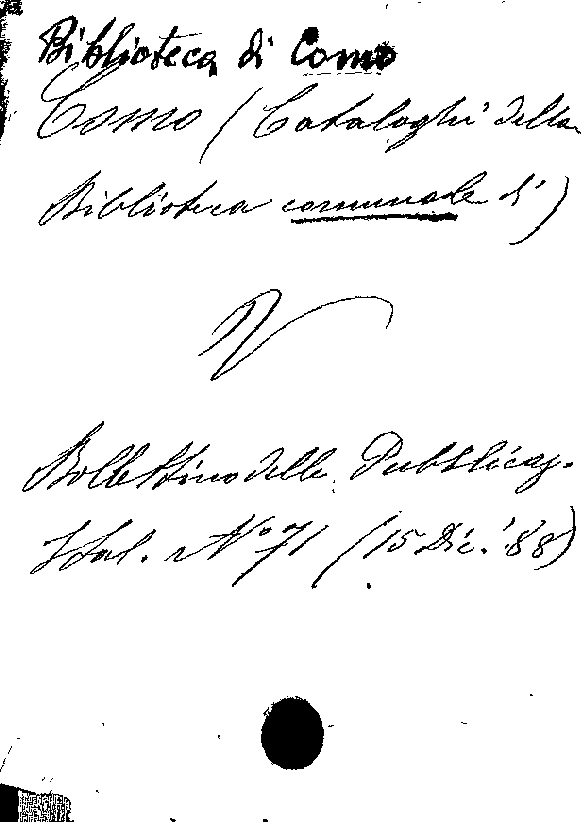 Biblioteca di Como
Como (Cataloghi della
Biblioteca comunale di)
V
Bollettino delle Pubblicaz.
Ital. N° 71 (15 Dic. '88)